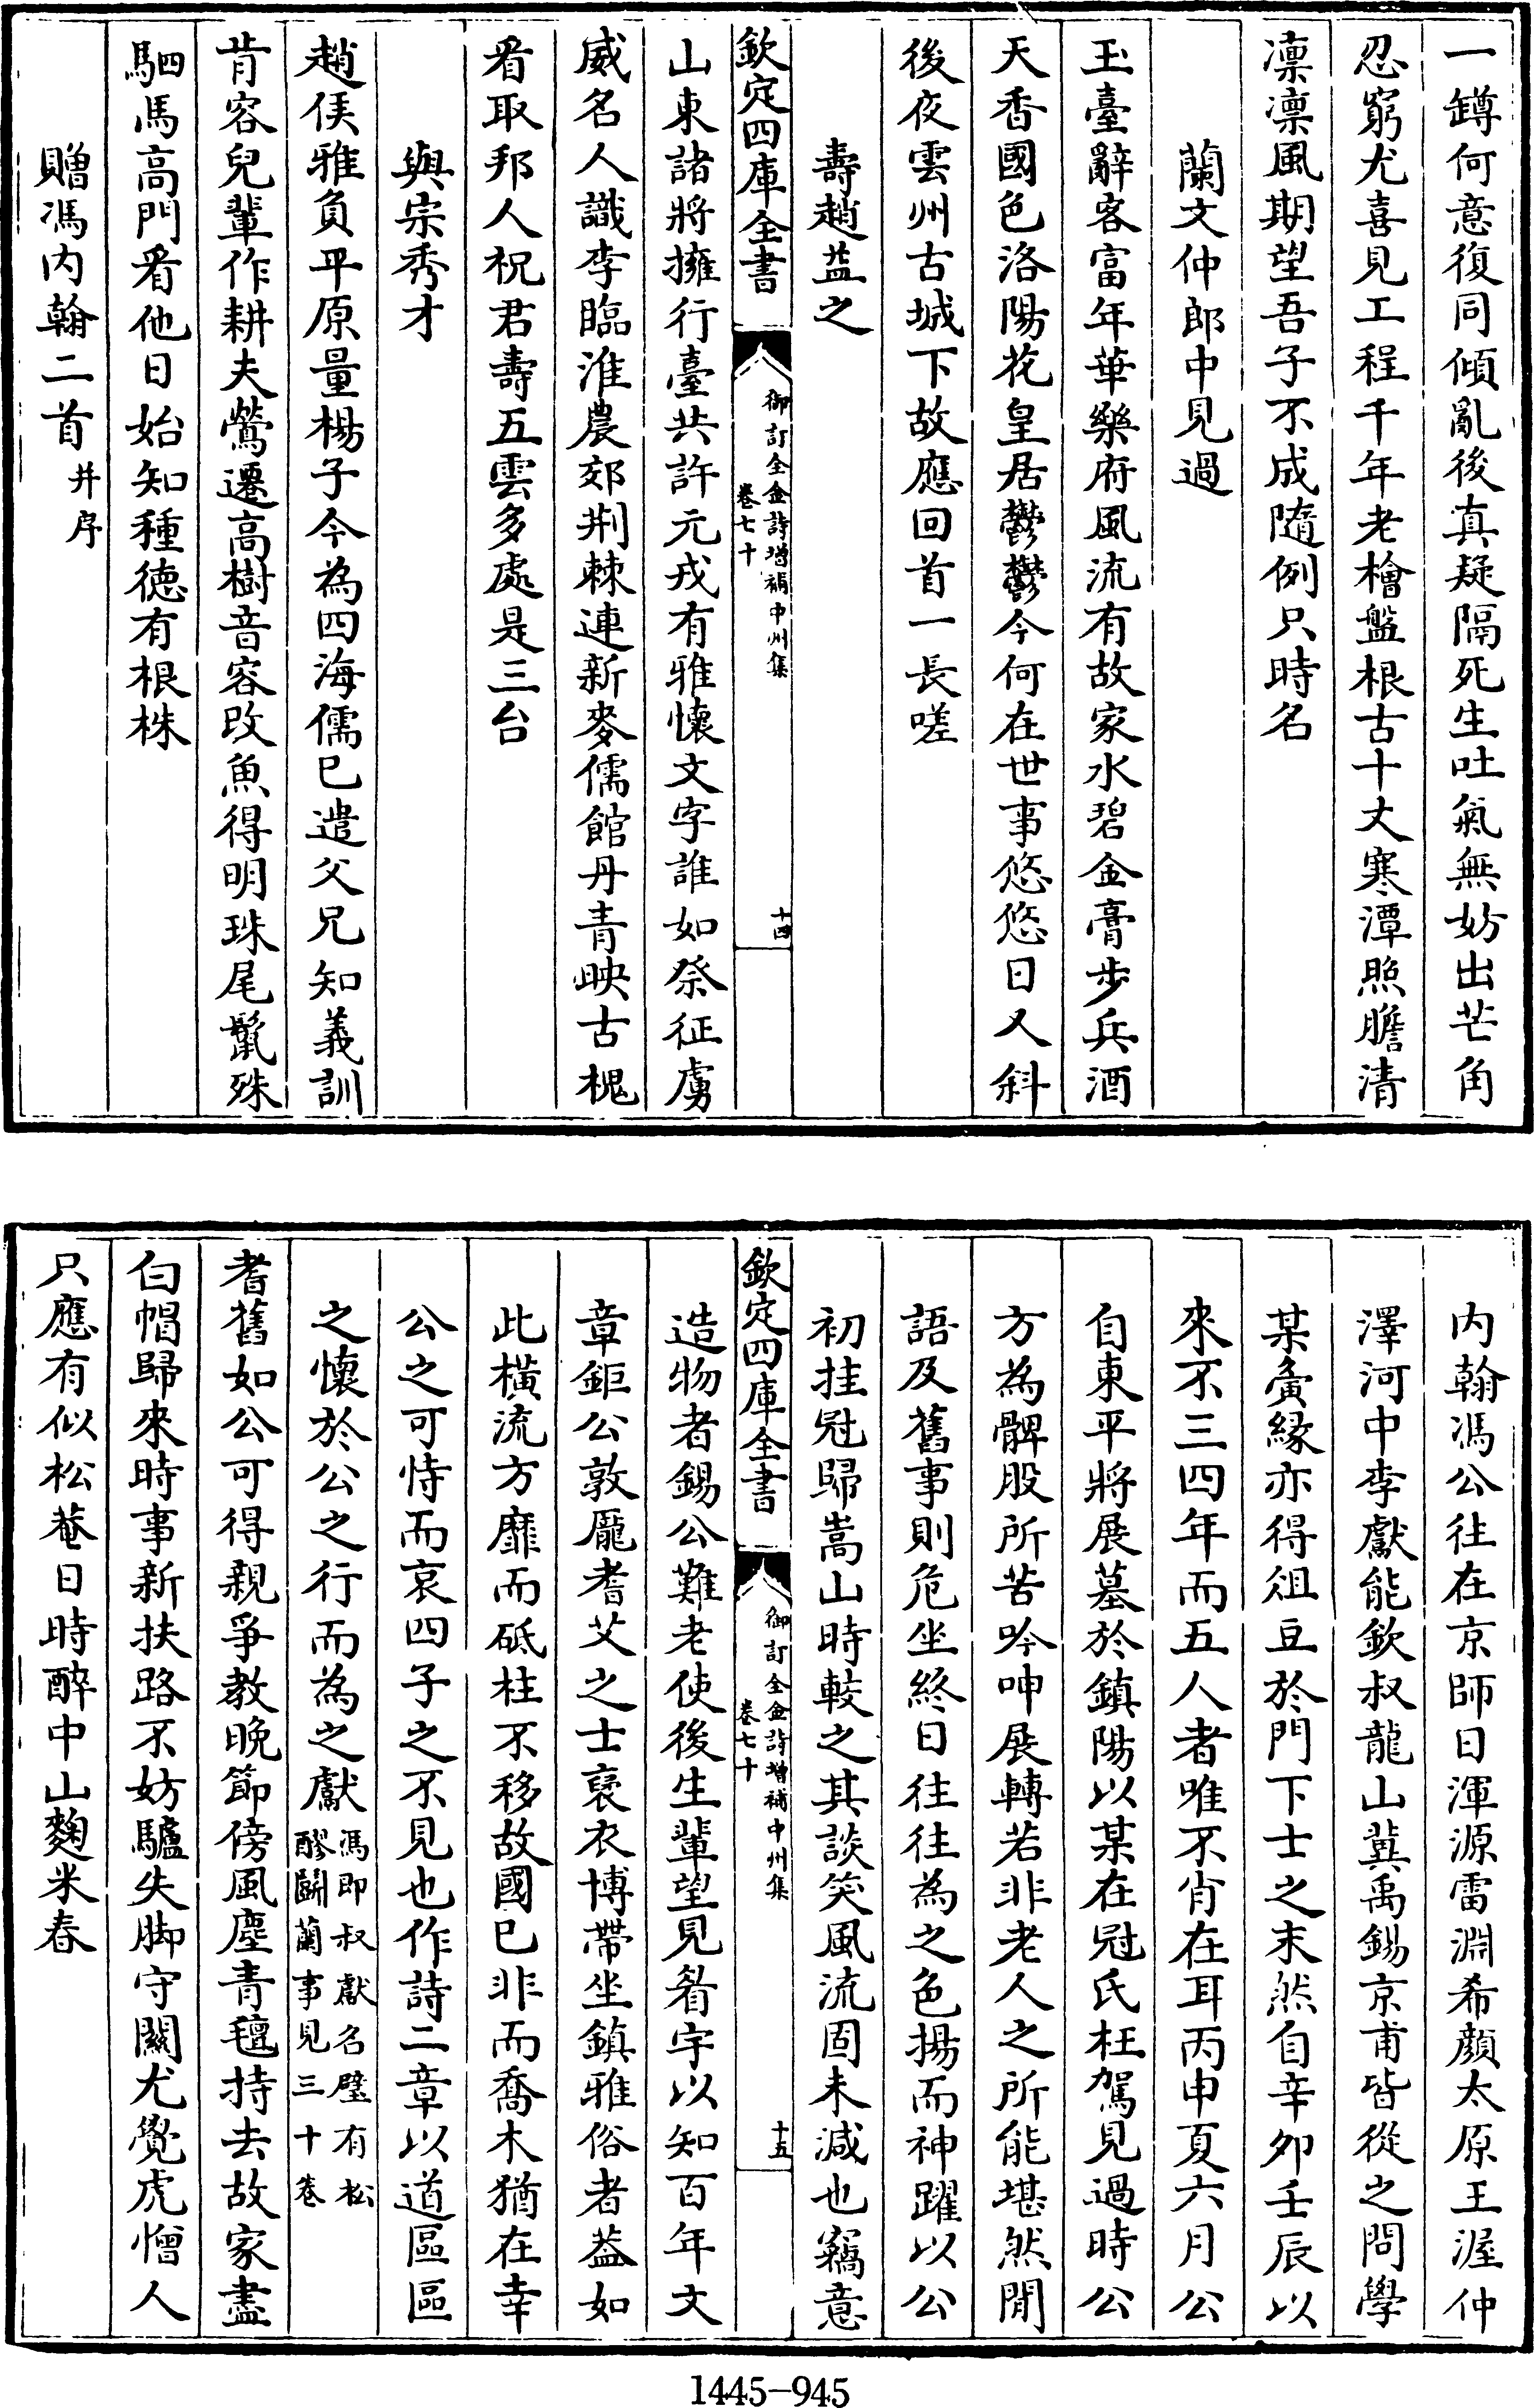 一罇何意復同傾亂後真疑隔死生吐氣無妨出芒角
忍窮尤喜見工程千年老檜盤根古十丈寒潭照膽清
凛凛風期望吾子不成隨例只時名
蘭文仲郎中見過
玉臺辭客富年華樂府風流有故家水碧金膏步兵酒
天香國色洛陽花皇居鬱鬱今何在世事悠悠日又斜
後夜雲州古城下故應回首一長嗟
壽趙益之
欽定四庫全書
御訂全金詩增補中州集
卷七十
十四
山東諸將擁行臺共許元戎有雅懷文字誰如祭征虜
威名人識李臨淮農郊荆棘連新麥儒館丹青映古槐
看取邦人祝君壽五雲多處是三台
與宗秀才
趙侯雅負平原量楊子今為四海儒已遣父兄知義訓
肯容兒輩作耕夫鶯遷高樹音容改魚得明珠尾鬛殊
駟馬高門看他日始知種徳有根株
贈馮内翰二首并序
内翰馮公往在京師日渾源雷淵希顔太原王渥仲
澤河中李獻能欽叔龍山冀禹錫京甫皆從之問學
某夤縁亦得俎豆於門下士之末然自辛夘壬辰以
來不三四年而五人者唯不肖在耳丙申夏六月公
自東平將展墓於鎮陽以某在冠氏枉駕見過時公
方為髀股所苦吟呻展轉若非老人之所能堪然閒
語及舊事則危坐終日往往為之色揚而神躍以公
初挂冠歸嵩山時較之其談笑風流固未減也竊意
欽定四庫全書
御訂全金詩增補中州集
卷七十
十五
造物者錫公難老使後生輩望見眉宇以知百年文
章鉅公敦龎耆艾之士褒衣博帶坐鎮雅俗者葢如
此横流方靡而砥柱不移故國已非而喬木猶在幸
公之可恃而哀四子之不見也作詩二章以道區區
之懷於公之行而為之獻馮即叔獻名璧有松
醪鬭蘭事見三十卷
耆舊如公可得親爭教晚節傍風塵青氊持去故家盡
白帽歸來時事新扶路不妨驢失脚守關尤覺虎憎人
只應有似松菴日時醉中山麴米春
1445-945